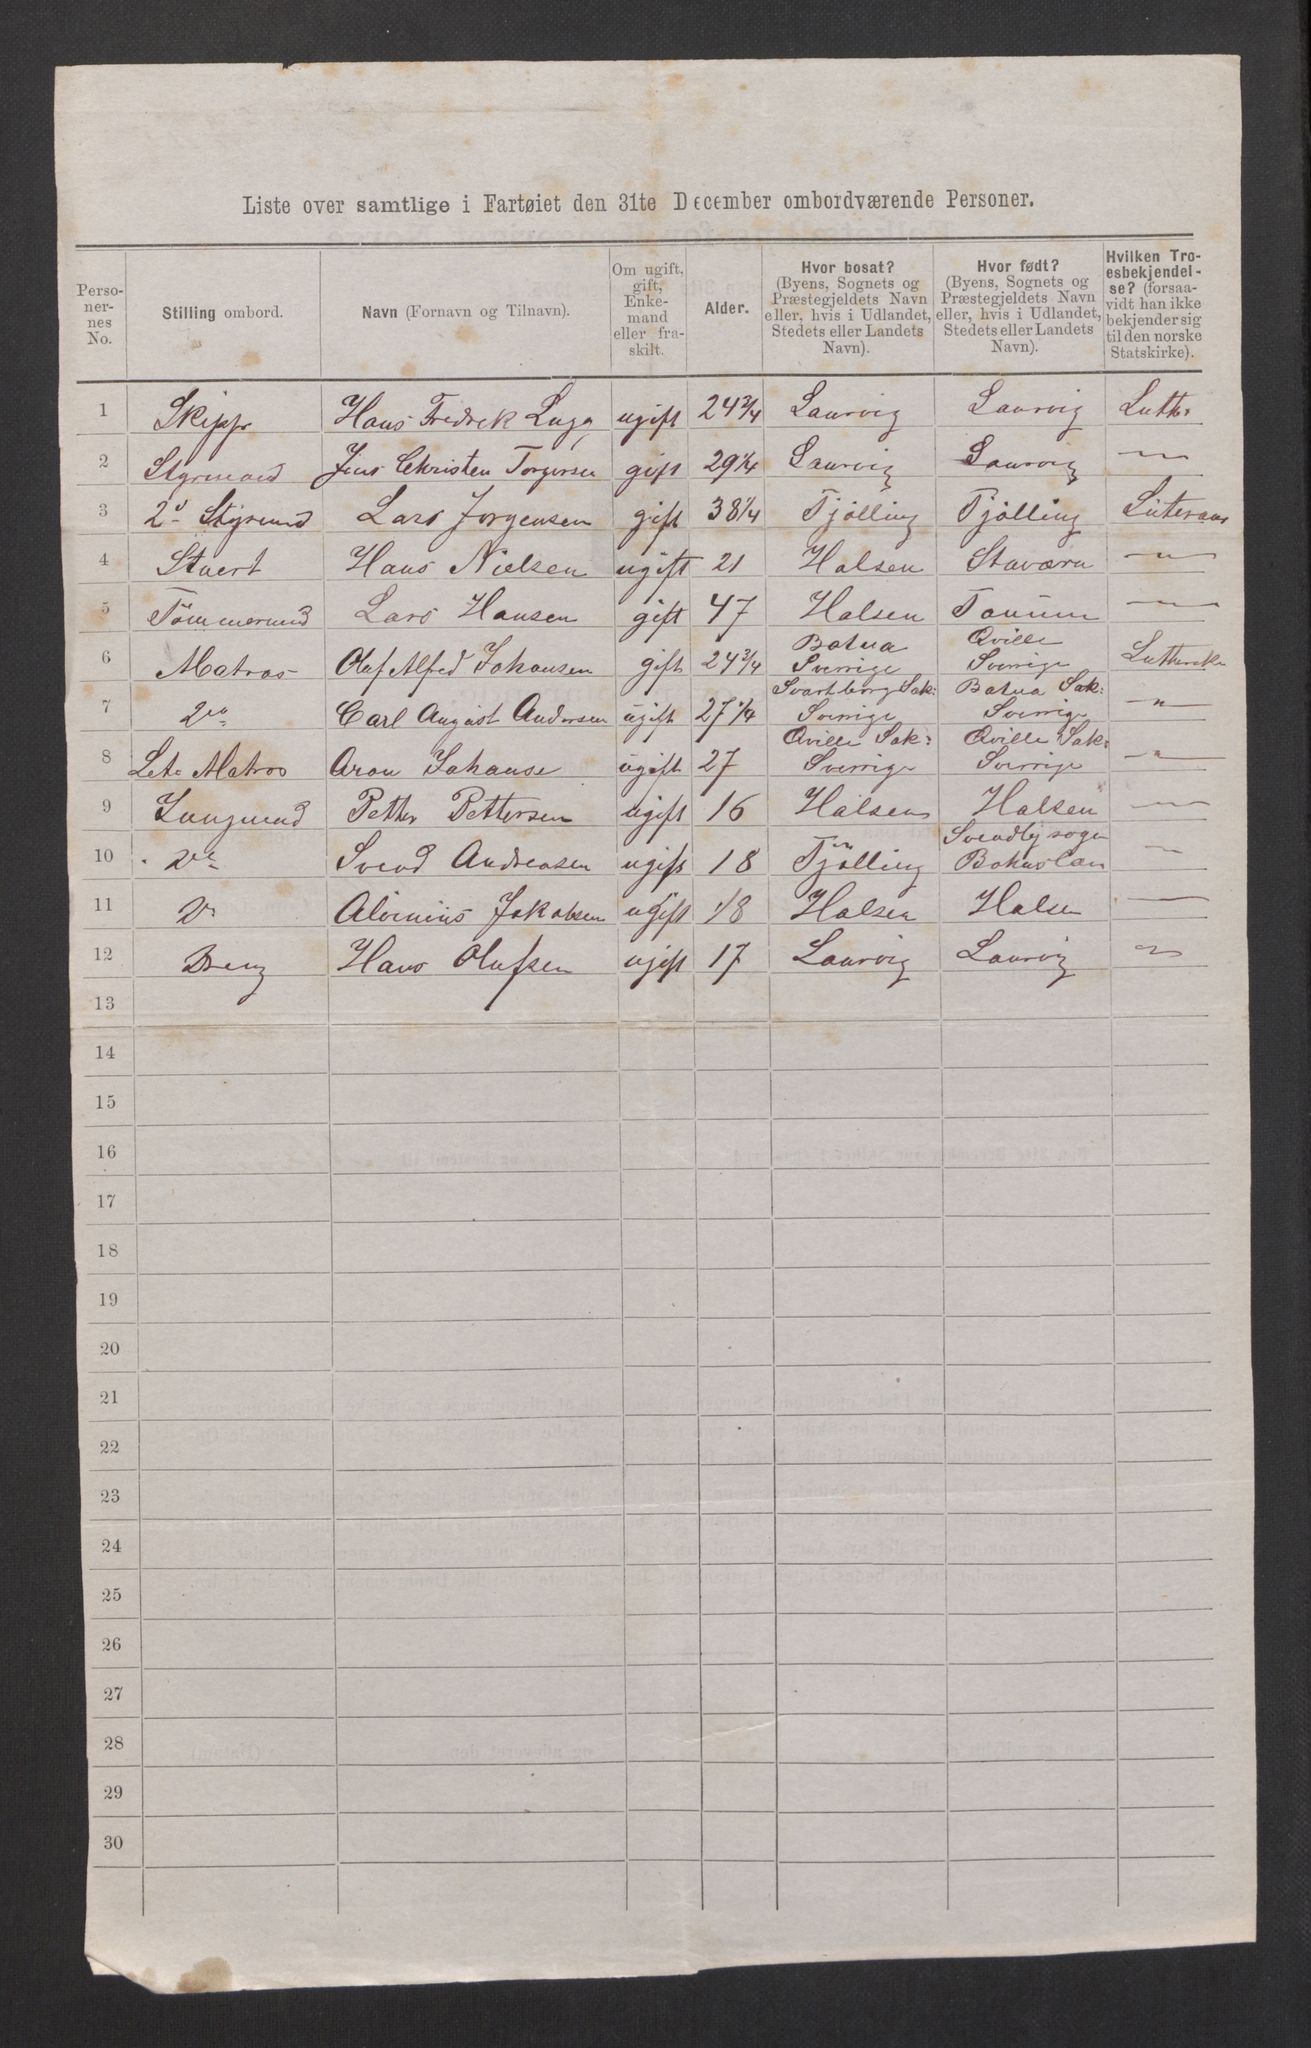 Liste over samtlige i Fartøiet den 31te December ombordværende Personer.
Personernes No. | Stilling ombord. | Navn (Fornavn og Tilnavn). | Om ugift, gift, Enkemand eller fraskilt. | Alder. | Hvor bosat? (Byens, Sognets og Præstegjeldets Navn eller, hvis i Udlandet, Stedets eller Landets Navn). | Hvor født? (Byens, Sognets og Præstegjeldets Navn eller, hvis i Udlandet, Stedets eller Landets Navn). | Hvilken Troesbekjendelse? (forsaavidt han ikke bekjender sig til den norske Statskirke).
1 | Skippr | Hans Fredrek Lugg | ugift | 24 3/4 | Laurvig | Laurvig | Luthr
2 | Styrmand | Jens Christen Torgersen | gift | 29 1/4 | Laurvig | Laurvig | "
3 | 2d Styrmnd | Lars Jorgensen | gift | 38 1/4 | Tjölling | Tjölling | Luterans
4 | Stuert | Hans Nielsen | ugift | 21 | Halsen | Staværn | "
5 | Tömmermnd | Lars Hansen | gift | 47 | Halsen | Tanum | "
6 | Matros | Olaf Alfred Johansen | gift | 24 3/4 | Batna Sverrige | Qville Sverrige | Lutherske
7 | Do | Carl August Andersen | ugift | 27 1/4 | Svartborg Sok: Sverrige | Batna Sok: Sverrige | "
8 | Let. Matros | Aron Johanse | ugift | 27 | Qville Sok: Sverrige | Qville Sok: Sverrige | "
9 | Jungmnd | Petter Pettersen | ugift | 16 | Halsen | Halsen | "
10 | Do | Svend Andreasen | ugift | 18 | Tjölling | Svendby sogn Bohuslan | "
11 | Do | Jakobsen | ugift | 18 | Halsen | Halsen | "
12 | Dreng | Hans Olufsen | ugift | 17 | Laurvig | Laurvig | "
13
14
15
16
17
18
19
20
21
22
23
24
25
26
27
28
29
30